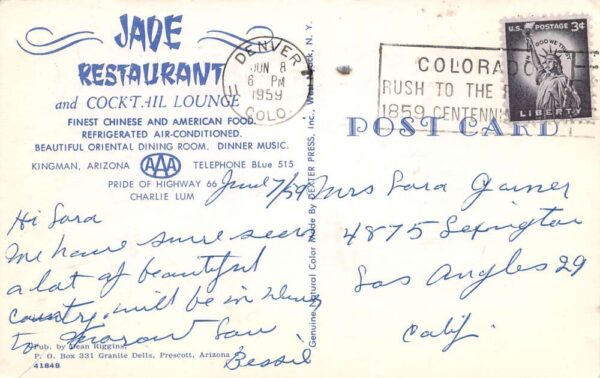 JADE
RESTAURANT
and COCKTAIL LOUNGE
FINEST CHINESE AND AMERICAN FOOD.
REFRIGERATED AIR-CONDITIONED.
BEAUTIFUL ORIENTAL DINING ROOM. DINNER MUSIC.
KINGMAN, ARIZONA AAA TELEPHONE BLue 515
PRIDE OF HIGHWAY 66
CHARLIE LUM
June 7/59
Hi Sara
We have sure seen
a lot of beautiful
country, will be in
to morow
Bessie
Pub. by Dean Riggins,
P. O. Box 331 Granite Dells, Prescott, Arizona
41848
Genuine Natural Color Made By DEXTER PRESS, Inc., West Nyack, N. Y.
DENVER
JUN 8
6 PM
1959
COLO.
COLORADO
RUSH TO THE
1859 CENTENNI
U.S. POSTAGE 3¢
IN GOD WE TRUST
LIBERTY
POST CARD
Mrs Sara Garner
4875 Lexington
Los Angles 29
Calif.